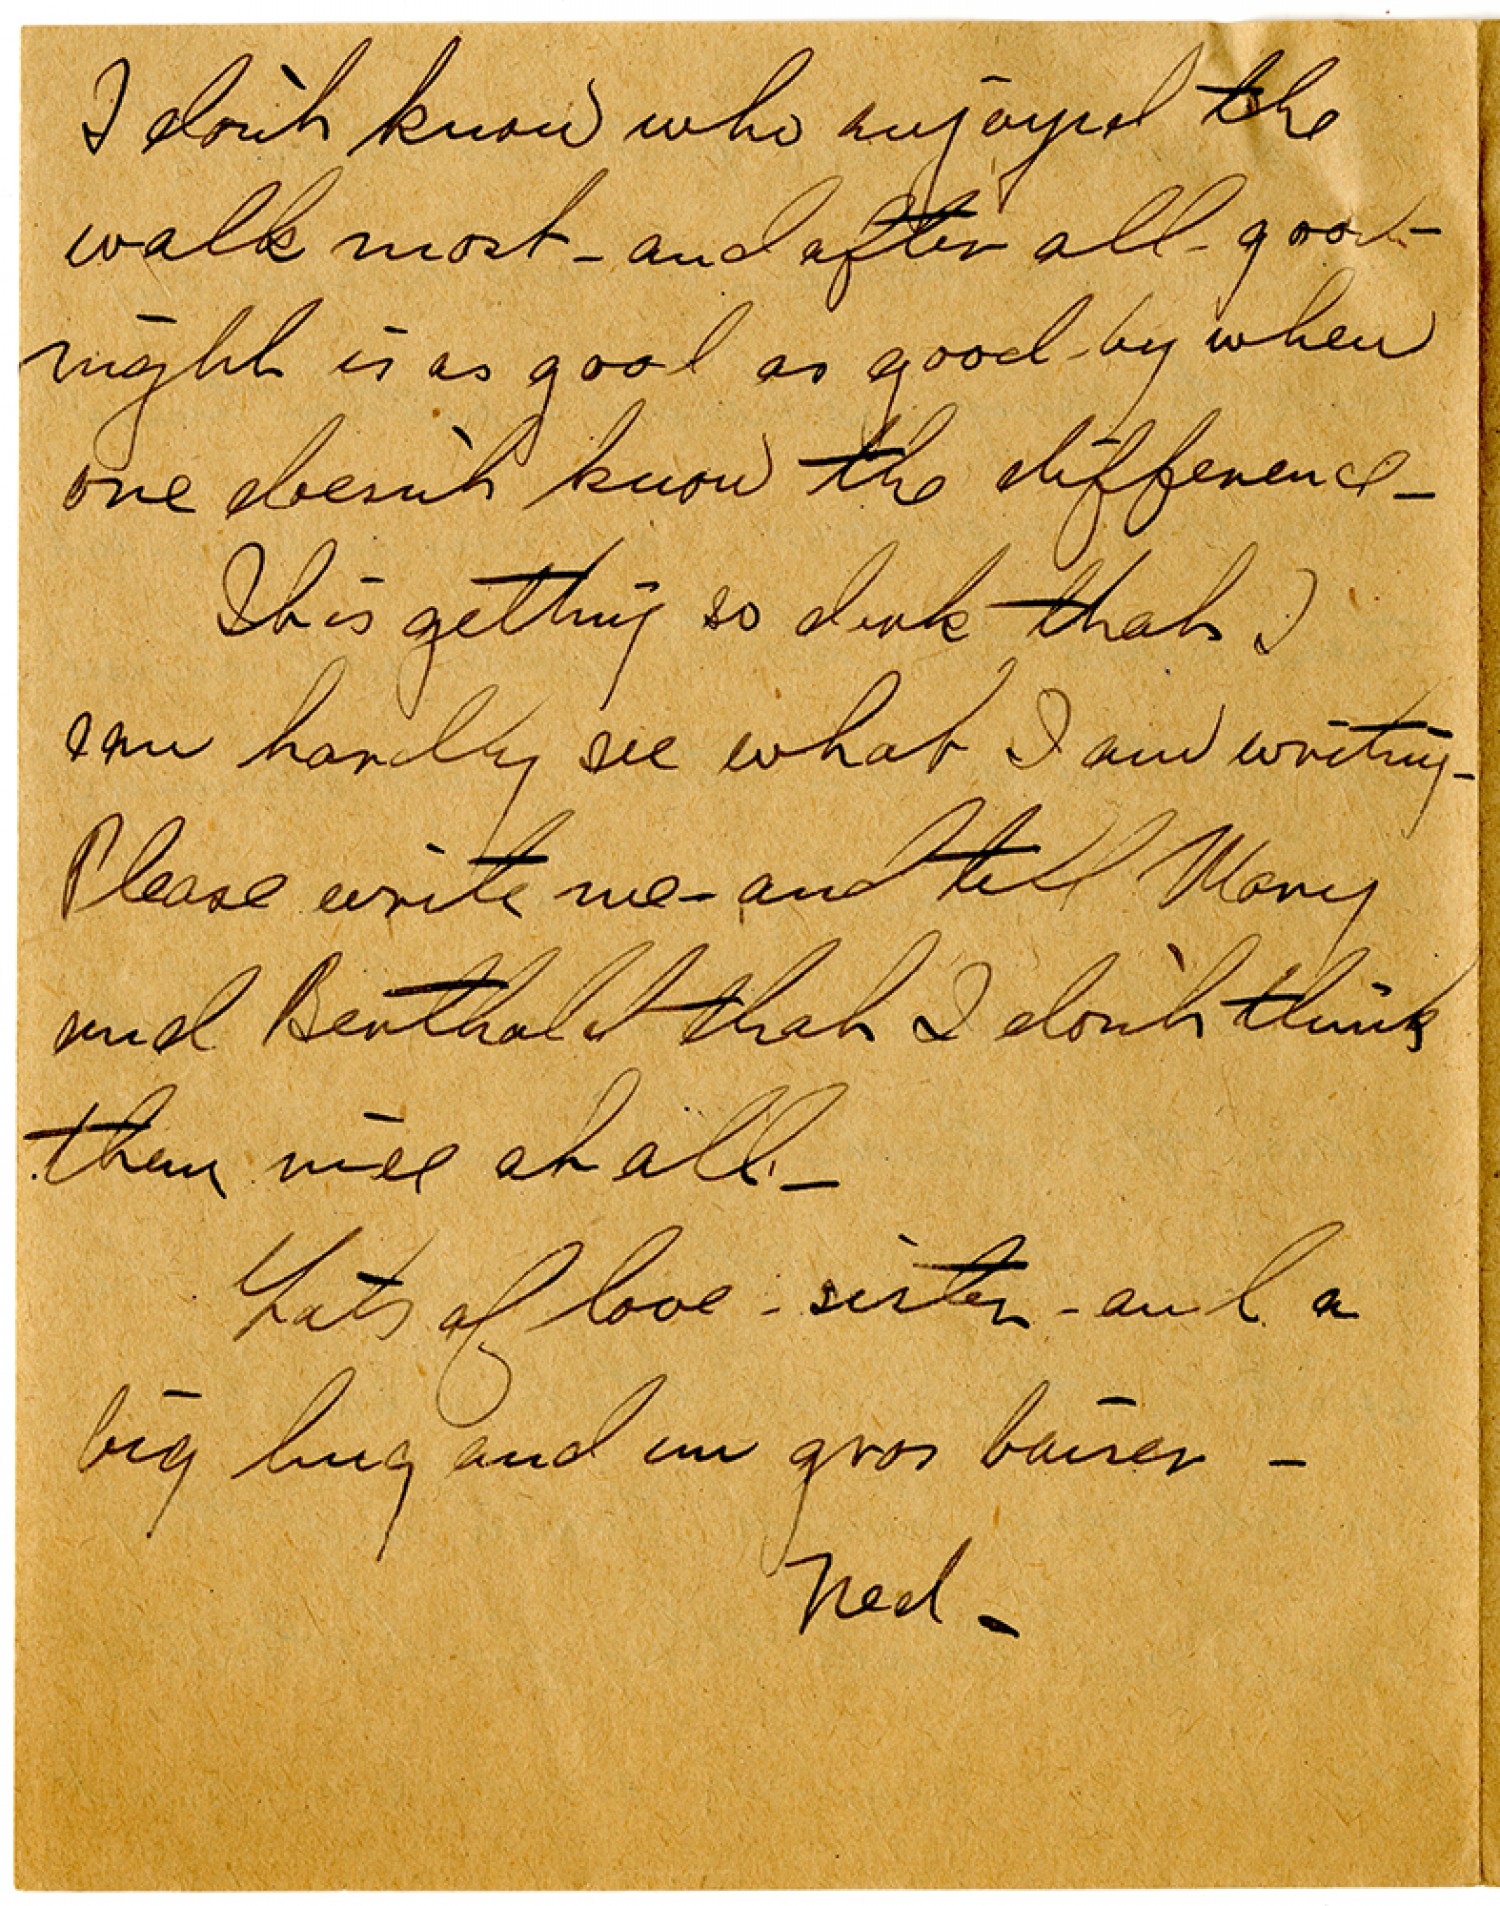 I don't know who enjoyed the
walk most - and after all - good-
night is as good as good-by when
one doesn't know the difference -
It is getting so dark that I
can hardly see what I am writing -
Please write me - and tell Mary
and Berthold that I don't think
them nice at all -
Lots of love - sister - and a
big hug and un gros baiser -
Ned -